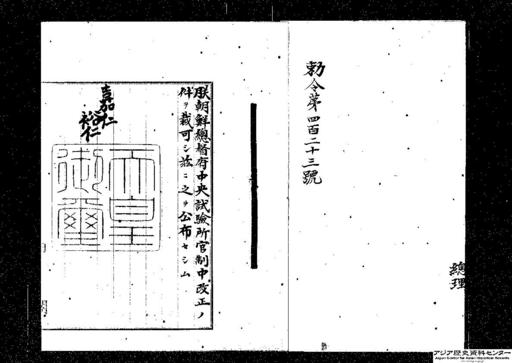 勅令第四百二十三號
總理
朕朝鮮總督府中央試驗所官制中改正ノ
件ヲ裁可シ茲ニ之ヲ公布セシム
嘉仁
裕仁
天皇
御璽
アジア歴史資料センター
Japan Center for Asian Historical Records